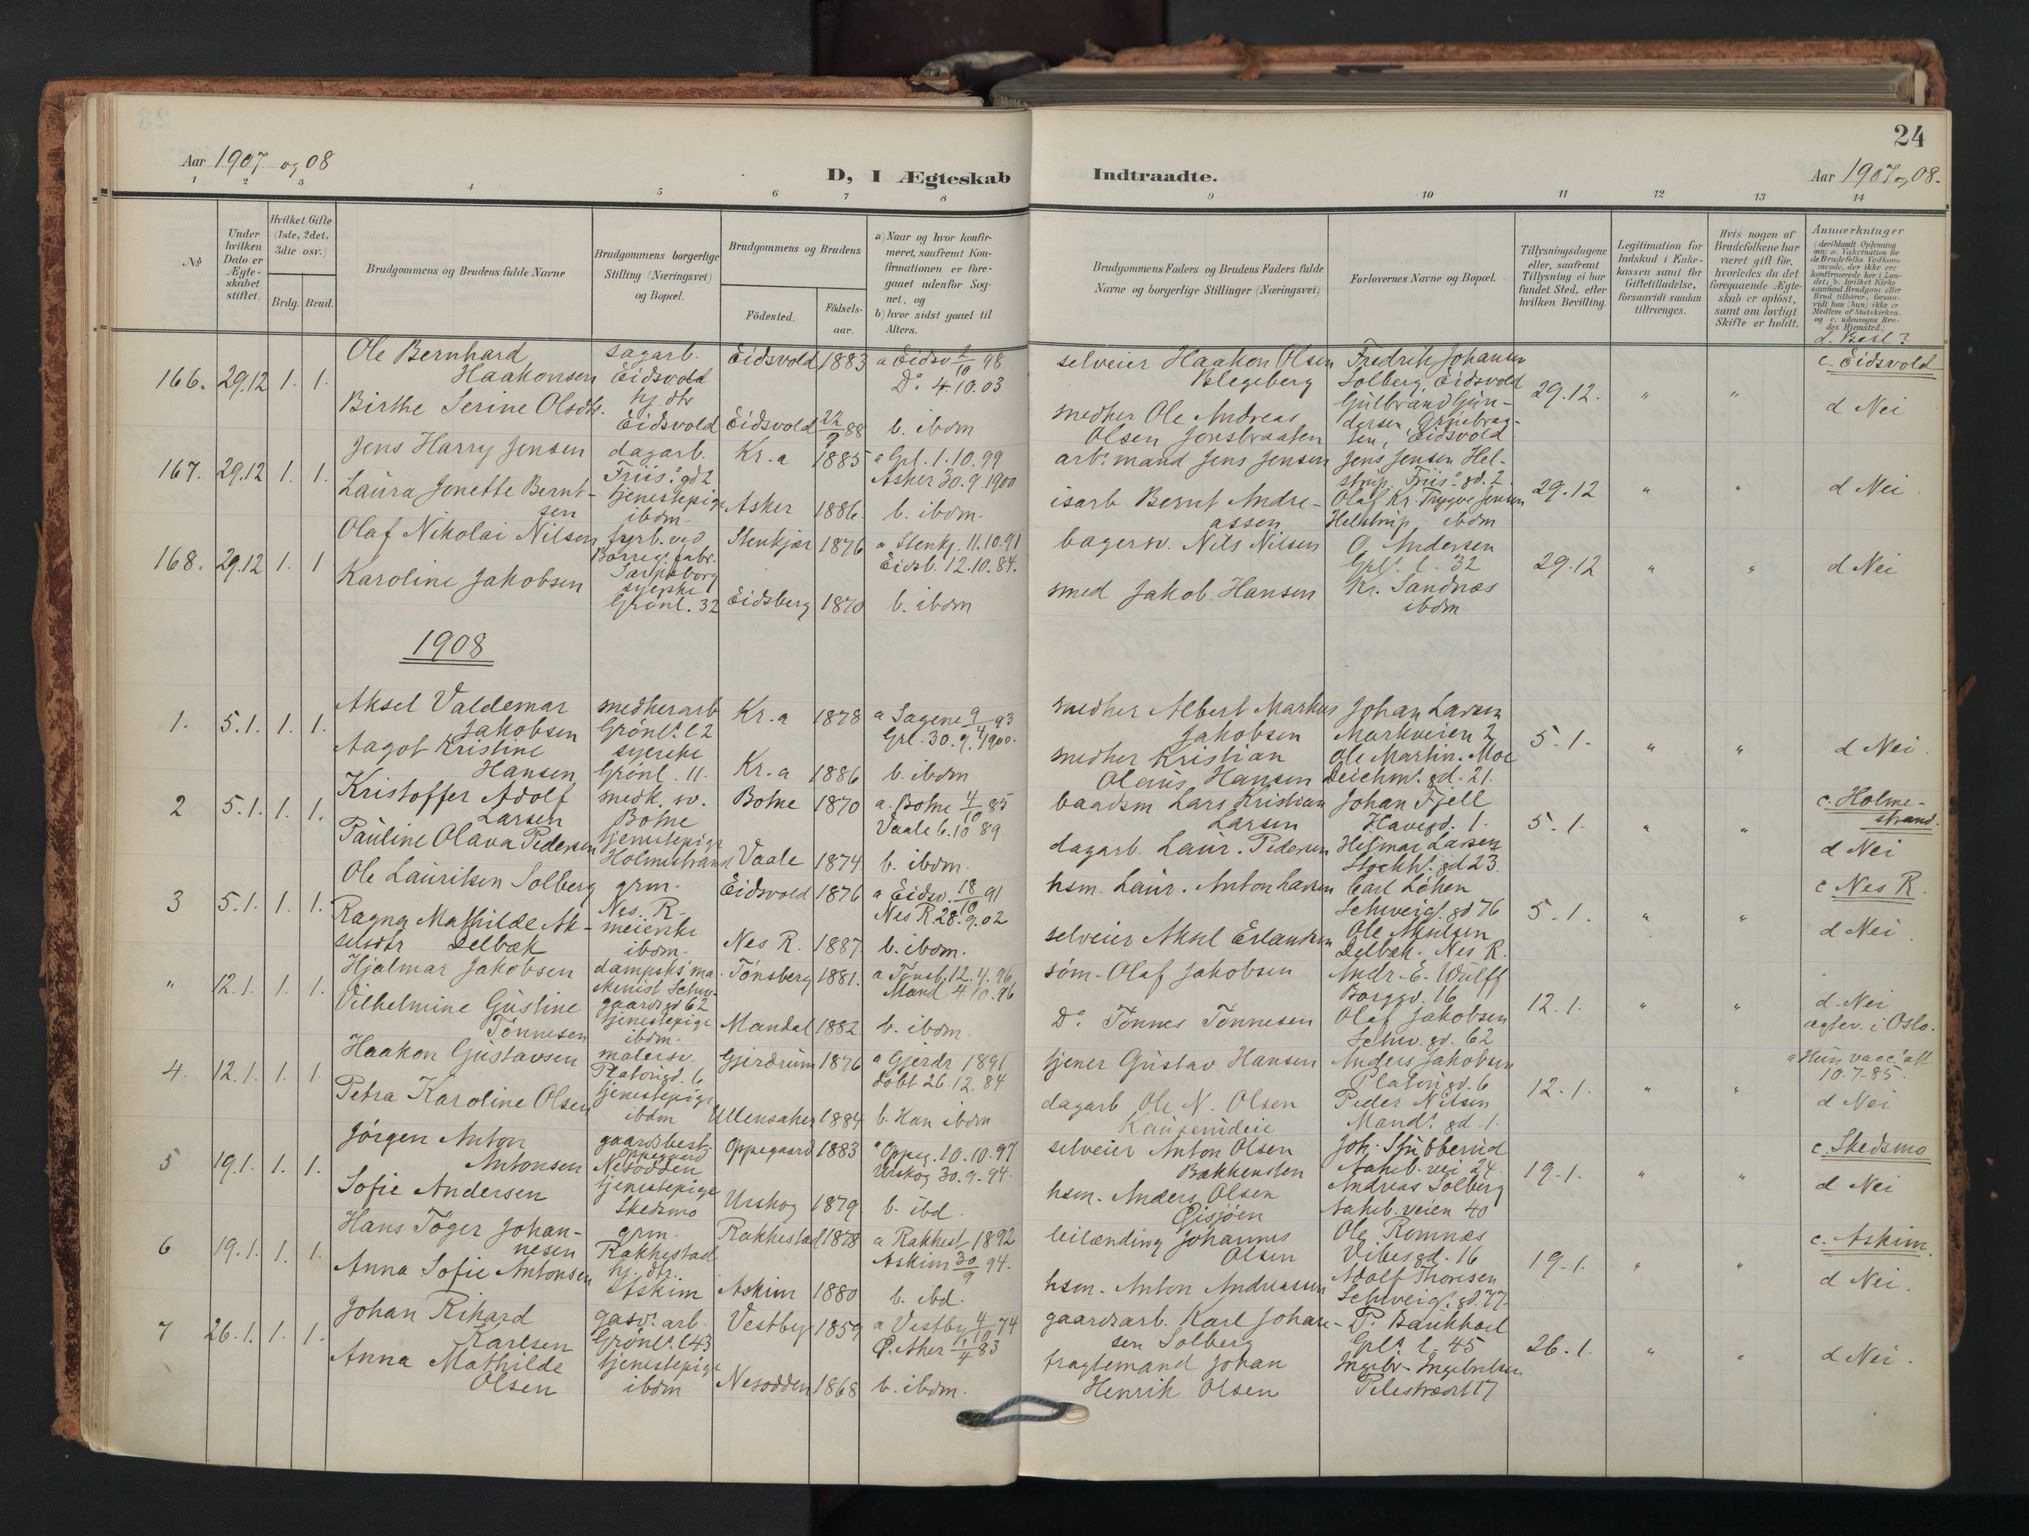 24
Aar 1907 og 08
D, I Ægteskab Indtraadte.
Aar 1907 og 08.
1 2 3 4 5 6 7 8 9 10 11 12 13 14
№
Under hvilken Dato er Ægteskabet stiftet.
Hvilket Gifte (1ste, 2det, 3die osv.)
Brdg. Brud.
Brudgommens og Brudens fulde Navne
Brudgommens borgerlige Stilling (Næringsvei) og Bopæl.
Brudgommens og Brudens
Fødested.
Fødselsaar.
a) Naar og hvor konfirmeret, saafremt Konfirmationen er foregaaet udenfor Sognet, og
b) hvor sidst gaaet til Alters.
Brudgommens Faders og Brudens Faders fulde Navne og borgerlige Stillinger (Næringsvei)
Forlovernes Navne og Bopæl.
Tillysningsdagene eller, saafremt Tillysning ei har fundet Sted, efter hvilken Bevilling.
Legitimation for Indskud i Enkekassen samt for Giftetilladelse, forsaavidt saadan tiltrænges.
Hvis nogen af Brudefolkene har været gift før, hvorledes da det foregaaende Ægteskab er opløst, samt om lovligt Skifte er holdt.
Anmærkninger
166. 29.12 1. 1. Ole Bernhard Haakonsen sagarb. Eidsvold Eidsvold 1883 a Eidsv 2/10 98 selveier Haakon Olsen Blegeberg Fredrik Johansen Solberg, Eidsvold 29.12. " " c. Eidsvold
Birthe Serine Olsdtr. hj. dtr Eidsvold Eidsvold 22/9 88 Do 4.10.03 b. ibdm medher Ole Andreas Olsen Jonsbraaten Gulbrand Gundersen, Eidsvold d Nei
167. 29.12 1. 1. Jens Harry Jensen dagarb. Friis' gd 2 Kr.a 1885 a Grl. 1.10.99 arb.mand Jens Jensen Jens Jensen Helstrup, Friis' gd. 2 29.12 " " d Nei
Laura Jonette Berntsen tjenestepige ibdm. Asker 1886. Asker 30.9.1900 b. ibdm. isarb Bernt Andreassen Olaf Kr. Trygve Jensen Helstrup ibdm
168. 29.12 1. 1. Olaf Nikolai Nilsen fyrb. ved Borreg. fabr. Sarpsborg Stenkjær 1876 a Stenkj. 11.10.91 bagersv. Nils Nilsen O. Andersen Grl. l. 32 29.12 " " d Nei
Karoline Jakobsen syerske Grønl. 32 Eidsberg 1870 Eidsb. 12.10.84. b. ibdm smed Jakob Hansen Kr. Sandnæs ibdm
1908
1. 5.1. 1. 1. Aksel Valdemar Jakobsen medherarb Grønl. l 2 Kr.a 1878 a Sagene 9/4 93 medher Albert Markus Jakobsen Johan Larsen Markveien 2 5.1. " " d Nei
Aagot Kristine Hansen syerske Grønl. 11. Kr.a 1886 Grl. 30.9.1900. b. ibdm medher Kristian Olaus Hansen Ole Martin Moe Deichm. gd. 21.
2 5.1. 1. 1. Kristoffer Adolf Larsen medk. sv. Botne Botne 1870 a. Botne 4/10 85 baadsm. Lars Kristian Larsen Johan Fjell Havegd. 1. 5.1. " " c. Holmestrand.
Pauline Olava Pedersen tjenestepige Holmestrand Vaale 1874 Vaale 6.10 89. b. ibdm. dagarb. Laur. Pedersen Hilmar Larsen Stockh. gd 23. d Nei
3 5.1. 1. 1. Ole Lauritsen Solberg grm. Nes. R. Eidsvold 1876 a Eidsv. 18/10 91 hsm. Laur. Anton Larsen Carl Lohen Schweig. gd 76 5.1. " " c Nes R.
Ragna Mathilde Akselsdtr Delbæk meierske ibdm. Nes R. 1887. Nes R 28.9.02 b. ibdm. selveier Aksel Erlandsen Ole Akselsen Delbæk, Nes R. d Nei
" 12.1. 1. 1. Hjalmar Jakobsen dampsk's maskinist Schwgaards gd 62 Tønsberg 1881. a Tønsb. 12.4.96 søm. Olaf Jakobsen Andr. E. Wulff Borggd. 16 12.1. " " d Nei
Vilhelmine Gustine Tønnesen tjenestepige ibdm. Mandal 1882 Mand 4.10.96 b. ibdm. Do Tønnes Tønnesen Olaf Jakobsen Schw. gd. 62 ægtev. i Oslo.
4. 12.1. 1. 1. Haakon Gustavsen malersv. Platousgd. 6 Gjerdrum 1876 a Gjerdr 1891 tjener Gustav Hansen Anders Jakobsen Platousgd. 6 12.1. " " a Hun vacc. att. 10.7-85.
Petra Karoline Olsen tjenestepige ibdm Ullensaker 1884 døbt 26.12.84 b. Han ibdm dagarb Ole N. Olsen Peder Nilsen Mand. gd. 1. d Nei
5 19.1. 1. 1. Jørgen Anton Antonsen gaardsbest. Oppegaard Nesodden Oppegaard 1883 a Oppeg. 10.10.97 selveier Anton Olsen Bakkensten Joh. Stubberud Aakeb. vei 24. 19.1. " " c. Skedsmo
Sofie Andersen tjenestepige Skedsmo Urskog 1879 Urskog 30.9.94. b. ibd. hsm. Anders Olsen Andreas Solberg Aakeb. veien 40 d Nei
6 19.1. 1. 1. Hans Tøger Johannesen grm. Rakkestad Rakkestad 1878 a Rakkest. 1892 leilænding Johannes Olsen Ole Romnæs Vibesgd. 16 19.1. " " c. Askim.
Anna Sofie Antonsen hj. dtr. Askim Askim 1880 Askim 30/9 94. b. ibd. hsm. Anton Andreassen Adolf Thoresen Schweig. gd. 77. d Nei.
7 26.1. 1. 1. Johan Rikard Karlsen gasv. arb. Grønl. l 43 Vestby 1859 a Vestby 4/10 74 gaardsarb. Karl Johansen Solberg Grl. l. 45 26.1. " " d Nei.
Anna Mathilde Olsen tjenestepige ibdm. Nesodden 1868 1/4 83 b. ibdm. fragtemand Johan Henrik Olsen Ingebr. Ingebretsen Pilestrædet 17